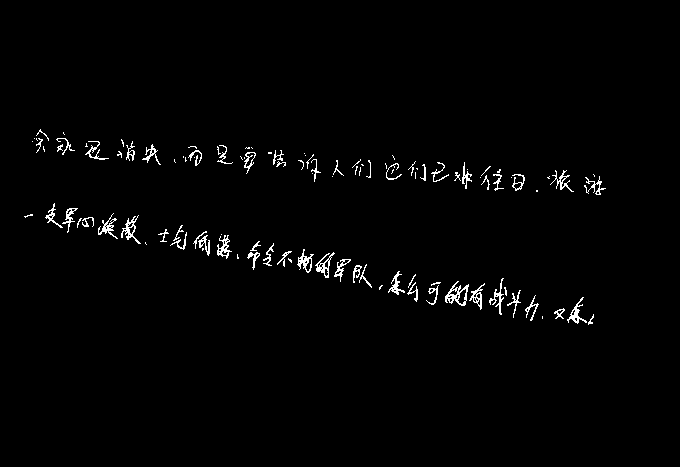 会永远消失,而是要告诉人们它们已非往日.旅游
一支军心涣散、士气低落、命令不畅的军队,怎么可能有战斗力.又怎么